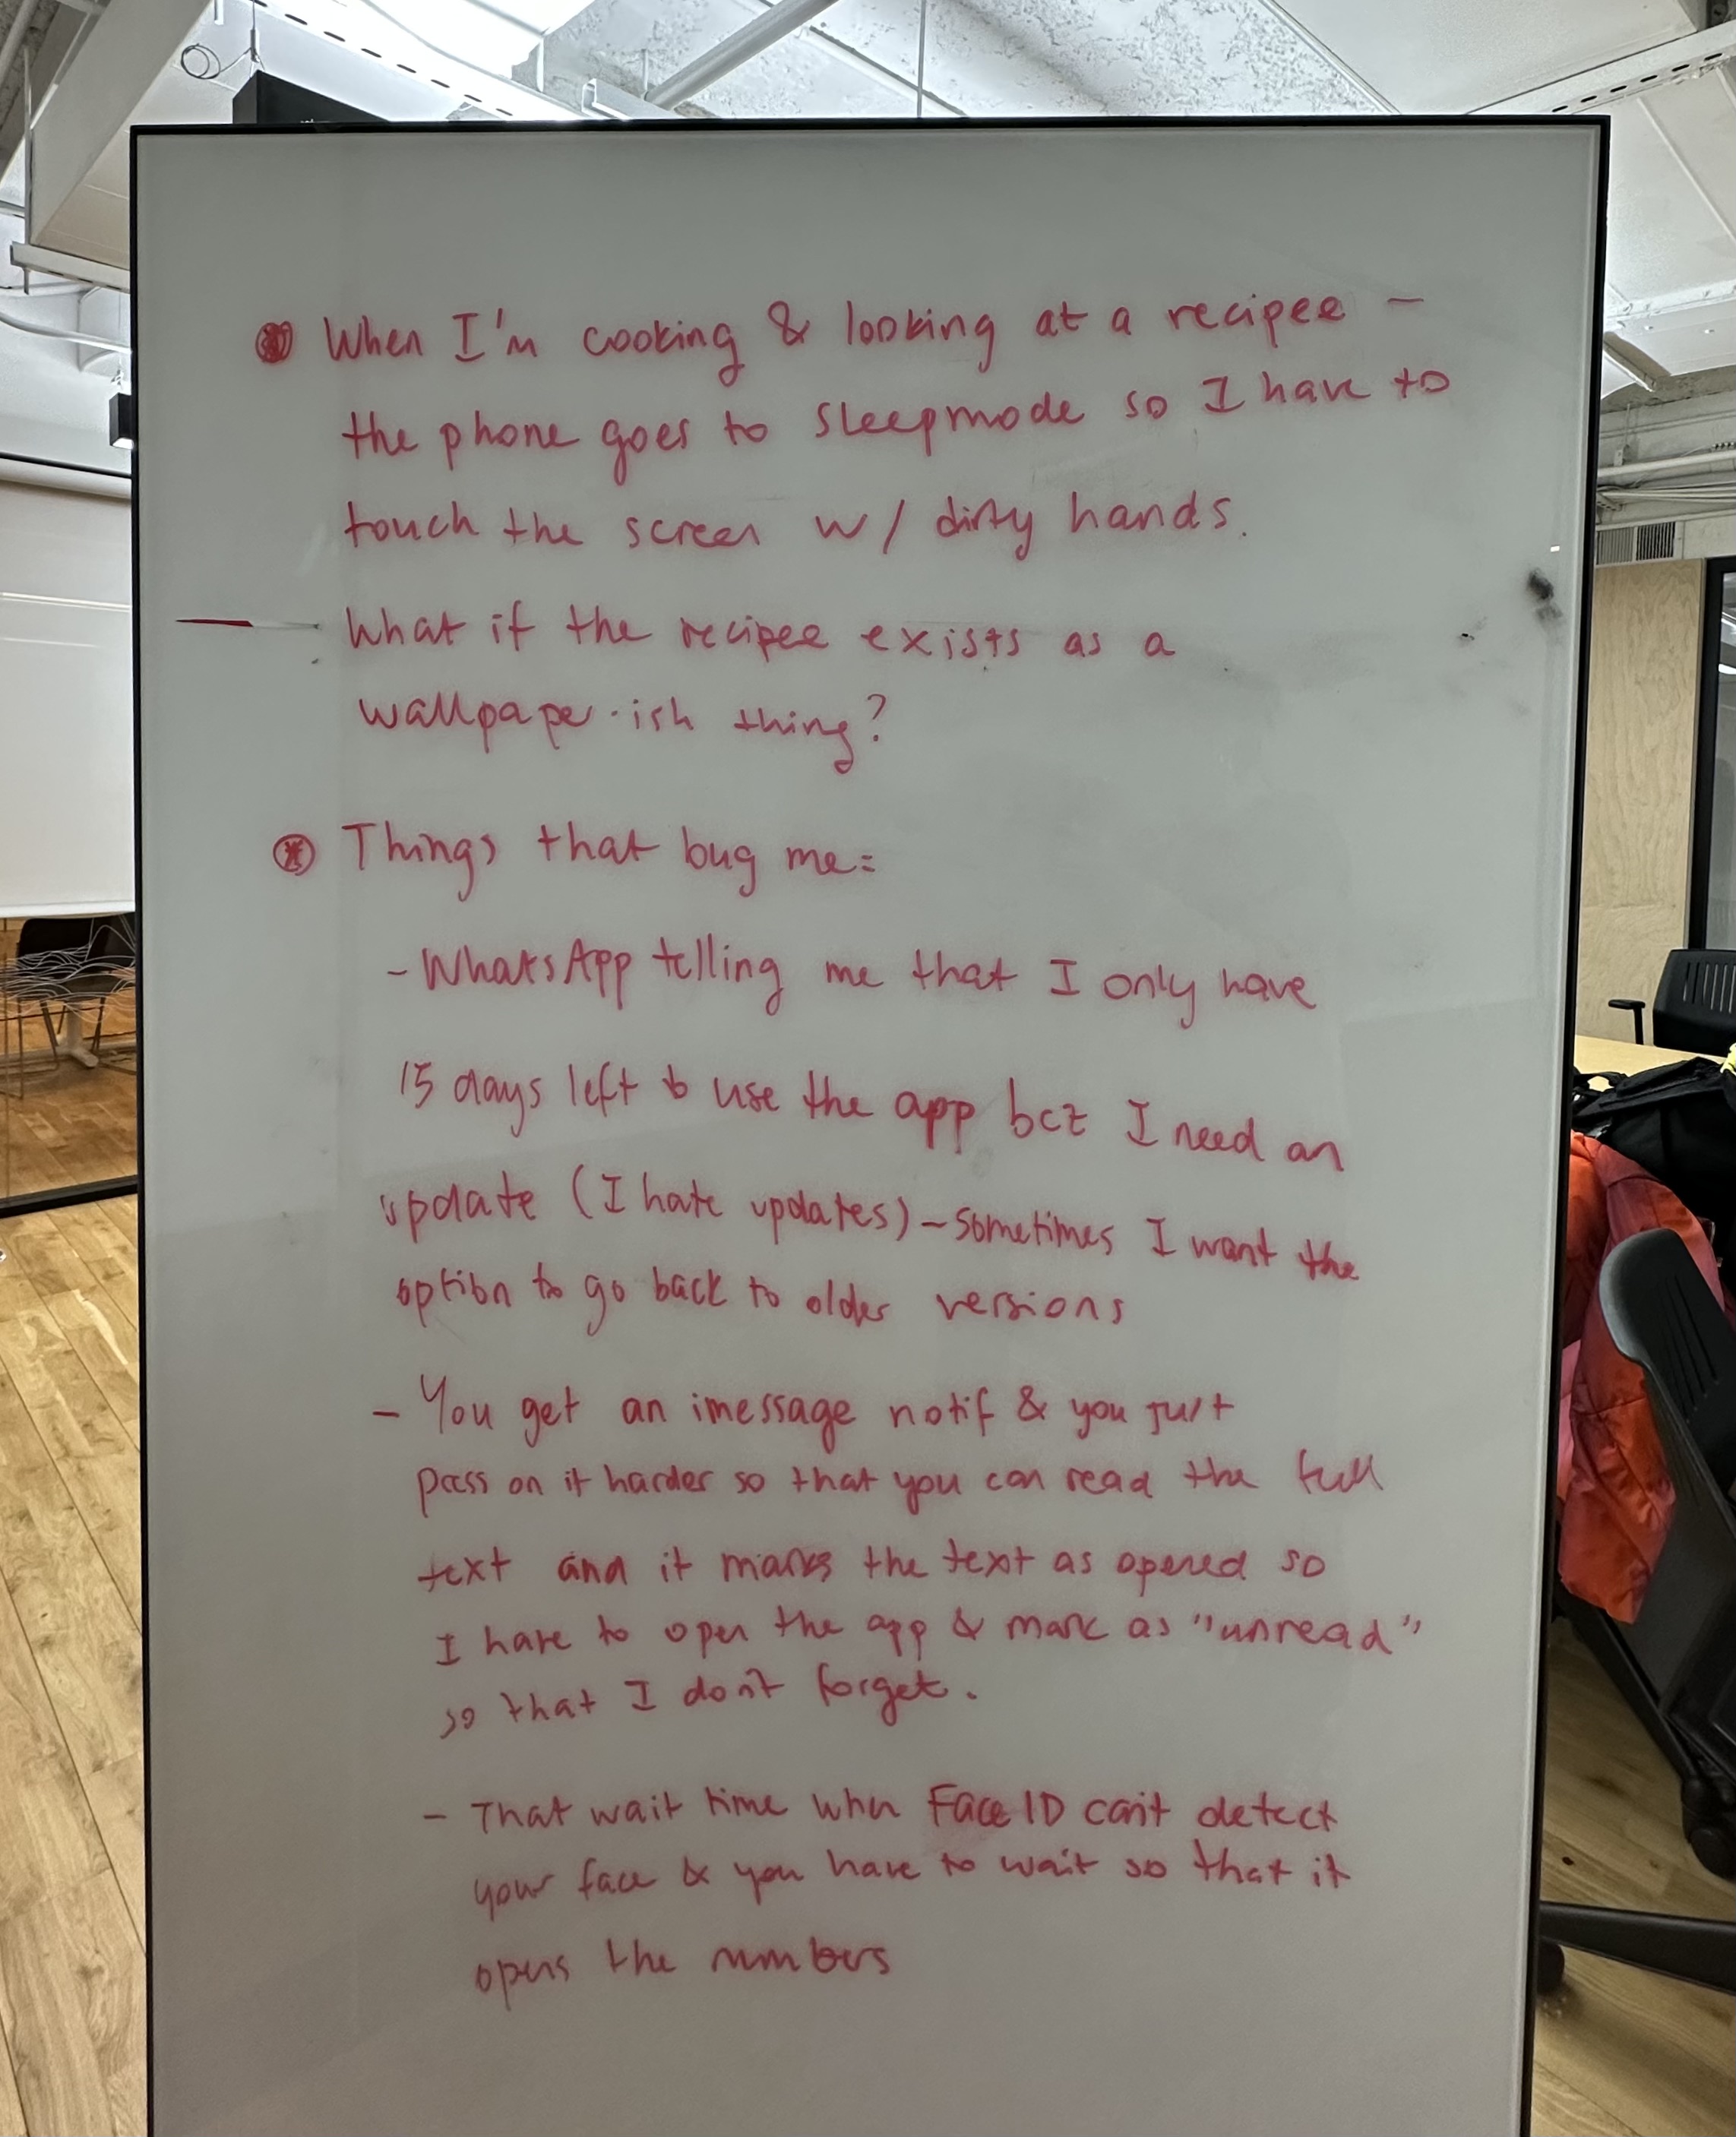 When I'm cooking & looking at a recipee -
the phone goes to sleepmode so I have to
touch the screen w/ dirty hands.
What if the recipee exists as a
wallpaper-ish thing?
Things that bug me:
- WhatsApp telling me that I only have
15 days left to use the app bcz I need an
update (I hate updates) - sometimes I want the
option to go back to older versions
- You get an imessage notif & you just
press on it harder so that you can read the full
text and it marks the text as opened so
I have to open the app & mark as "unread"
so that I don't forget.
- That wait time when Face ID can't detect
your face & you have to wait so that it
opens the numbers